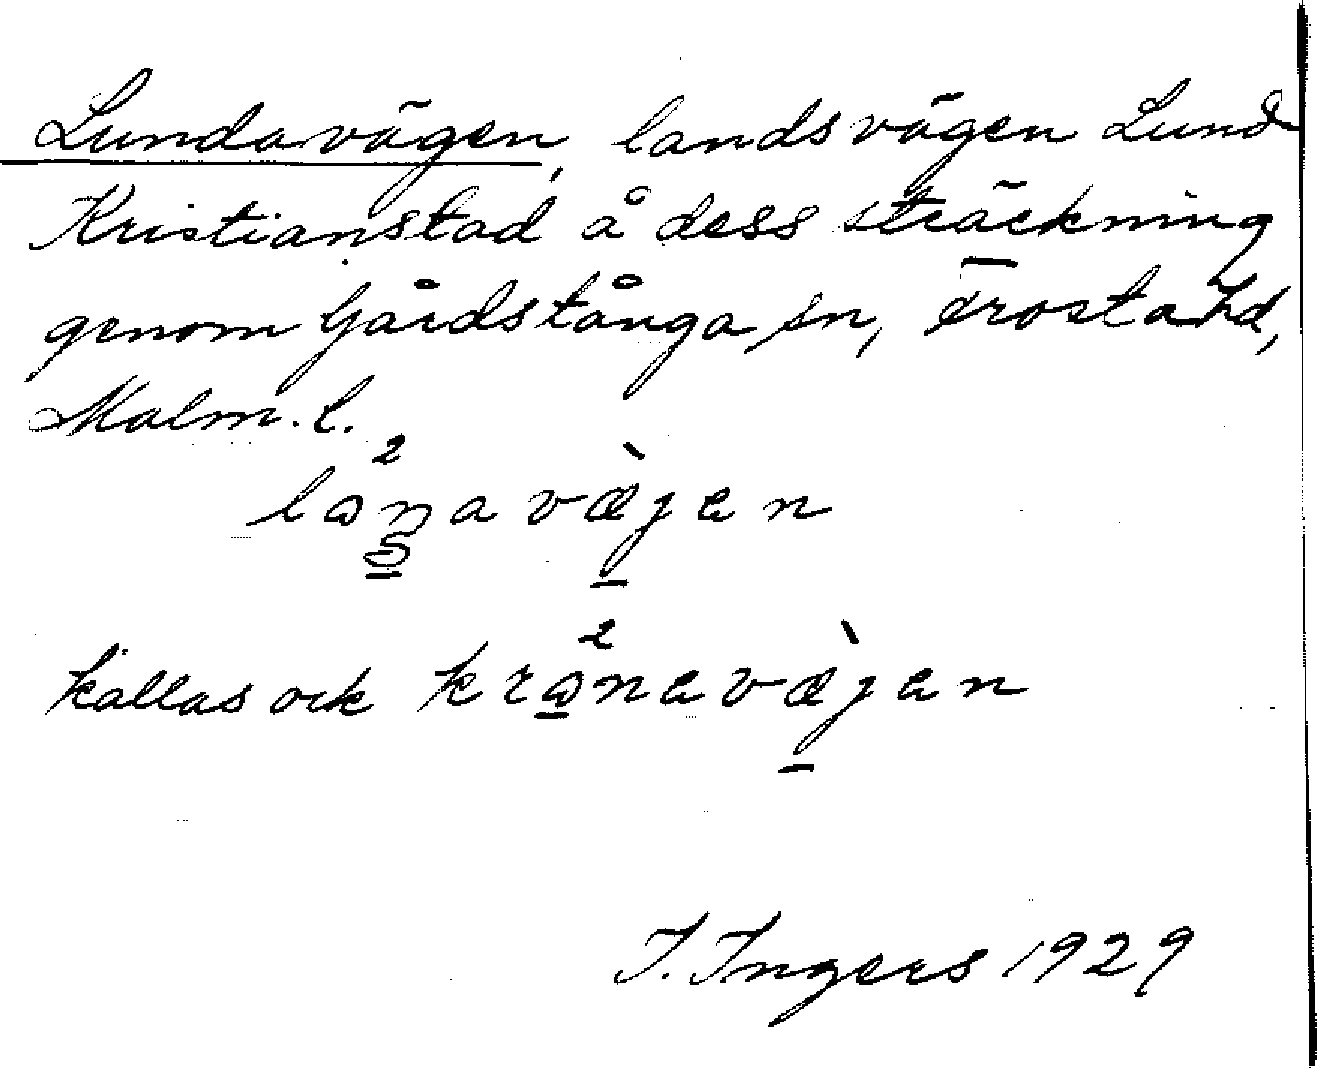 Lundavägen, landsvägen Lund
Kristianstad å dess sträckning
genom Gårdstånga sn, Frosta hd,
Malm. l.
källas ock
I. Ingers 1929